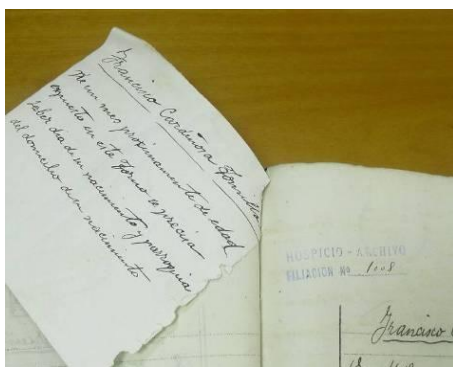 Francisco Cardinosa
De un mes proximamente de edad
expuesto en este Torno se precisa
saber dia de su nacimiento y parroquia
del domicilio de su nacimiento
HOSPICIO - ARCHIVO
FILIACIÓN Nº 1008
Francisco